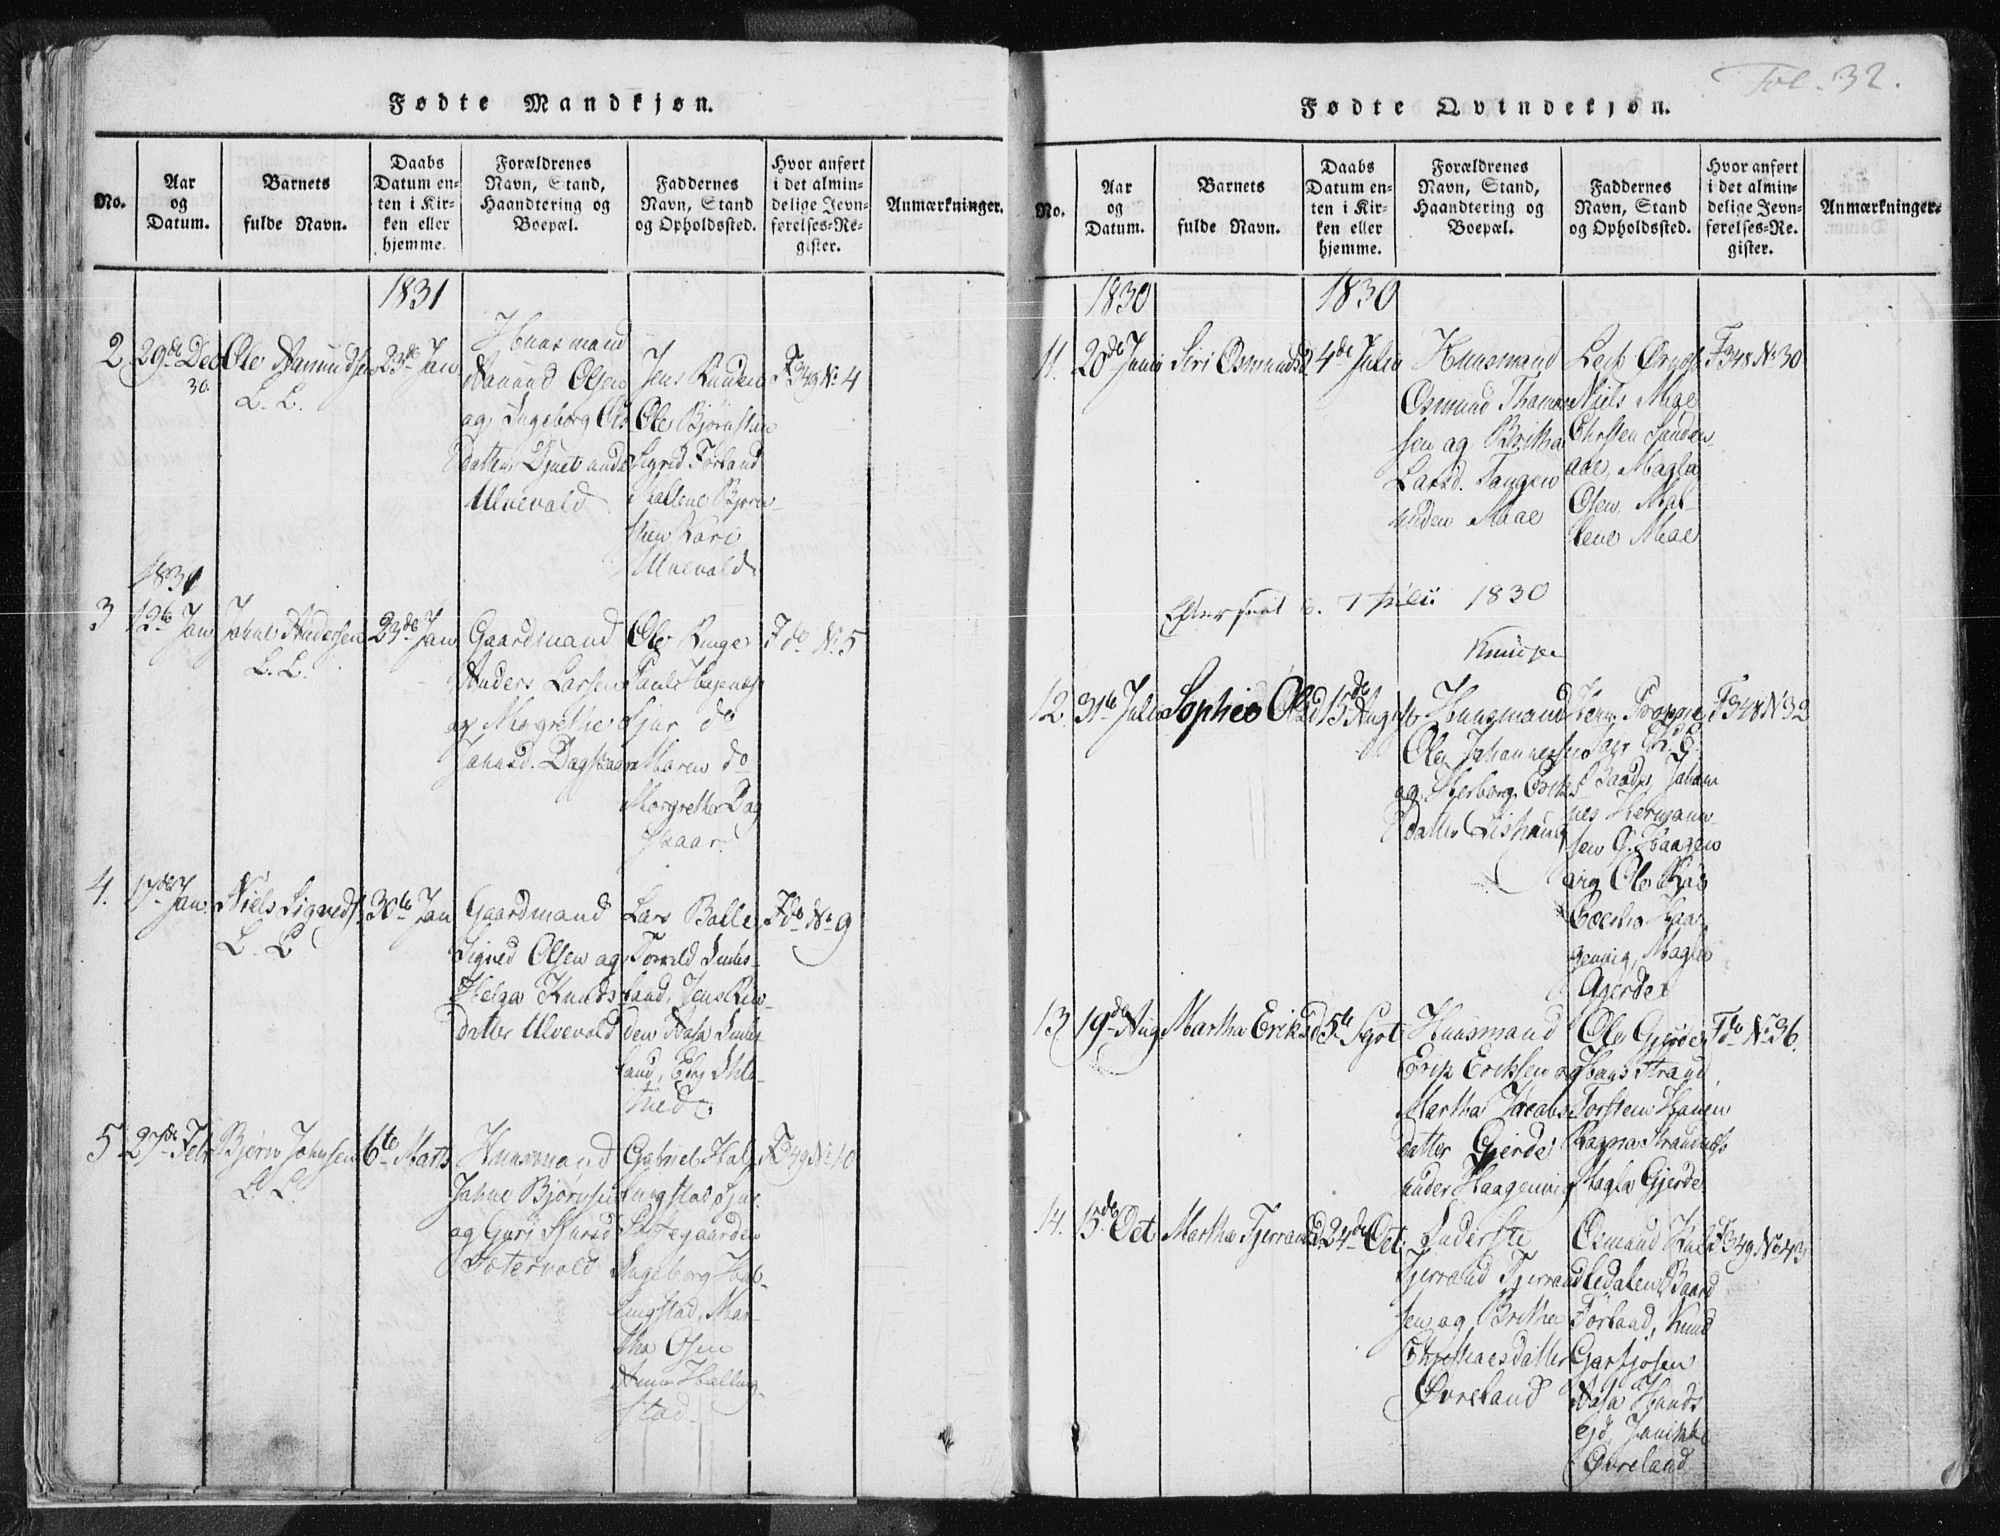 Fødte Mandkjøn.
No.
Aar
og
Datum.
Barnets
fulde Navn.
Daabs
Datum en-
ten i Kir-
ken eller
hjemme.
Forældrenes
Navn, Stand,
Haandtering og
Boepæl.
Faddernes
Navn, Stand
og Opholdssted.
Hvor anført
i det almin-
delige Jevn-
førelses-Re-
gister.
Anmærkninger.
1831
2
29de Dec
30
Ole Aamundsen
L. L.
23de Jan
Huusmand
Aamund Olsen
og Ingeborg Ols
datter
Ulvevold
Jens Runden
Ole Bjørnsteen
Sigrid Førland
Mallene Bjørn
steen Kari
Ulvevold
F 349 No 4
1831
3
12te Jan
Johne Andersen
L. L.
23de Jan
Gaardmand
Anders Larsen
og Margrethe
Johnsd. Dagskaar
Ole Ringe
Paul Hagenæs
Sjur do
Maren do
Margrethe Dag
skaar.
F do No 5
4.
17de Jan.
Niels Sigveds.
L. L.
30te Jan
Gaardmand
Sigved Olsen og
Helga Knuds
datter Ulvevold
Lars Balle
land, Jens Run
den Aasa
land, Elj
F do No 9
5
27de Febr
Bjørn Johnsen
L. L.
6te Marts
Huusmand
Johne Bjørnsen
og Guri Sjursd
Gabriel Hal
lingstad Sjur
Ingeborg Hal
lingstad, Mar
tha Osen
Anna Halling-
stad.
F 349 No 10
Fol. 32.
Fødte Qvindekjøn.
No.
Aar
og
Datum.
Barnets
fulde Navn.
Daabs
Datum en-
ten i Kir-
ken eller
hjemme.
Forældrenes
Navn, Stand,
Haandtering og
Boepæl.
Faddernes
Navn, Stand
og Opholdssted.
Hvor anført
i det almin-
delige Jevn-
førelses-Re-
gister.
Anmærkninger.
1830
1830
11.
20de Juni
Siri Osmundsd
4de Julii
Huusmand
Osmund Thomas
sen og Britha
Larsd. Tangen
unden Maae
Niels Mae
Christen Sanden
aae, Magla
Osen Mal-
lene Mae
F 348 No 30
Efterseet d. 7 Julii 1830
12.
31te Julii
Sophie Olsd
15de August
Huusmand
Ole Johannessen
og Herborg Eriks
datter
Baade, Johan
nes Herman
sen S. Haagen
vig Ole
Haa
genvig, Magla
Agerdet
F 348 No 32
13
19de Aug
Martha Eriksd
5te Sept
Huusmand
Erik Eriksen og
Martha Jacobs
datter Gjerde
under Haagenvig
Ole Gjerde
Hans Strand
Torsten Hauen
Ragna Strandnæs
Magla Gjerde
F do No 36.
14.
5de Oct
Martha Tjerrandsd
24de Oct
Inderste
Tjerrand Tjerrand
sen og Britha
Thomasdatter
Øvreland
Osmund Hal
ledalen, Baard
Førland, Knud
Garsjosen
Aasa Hunds
ejd,
Øvreland
F 349 No 43